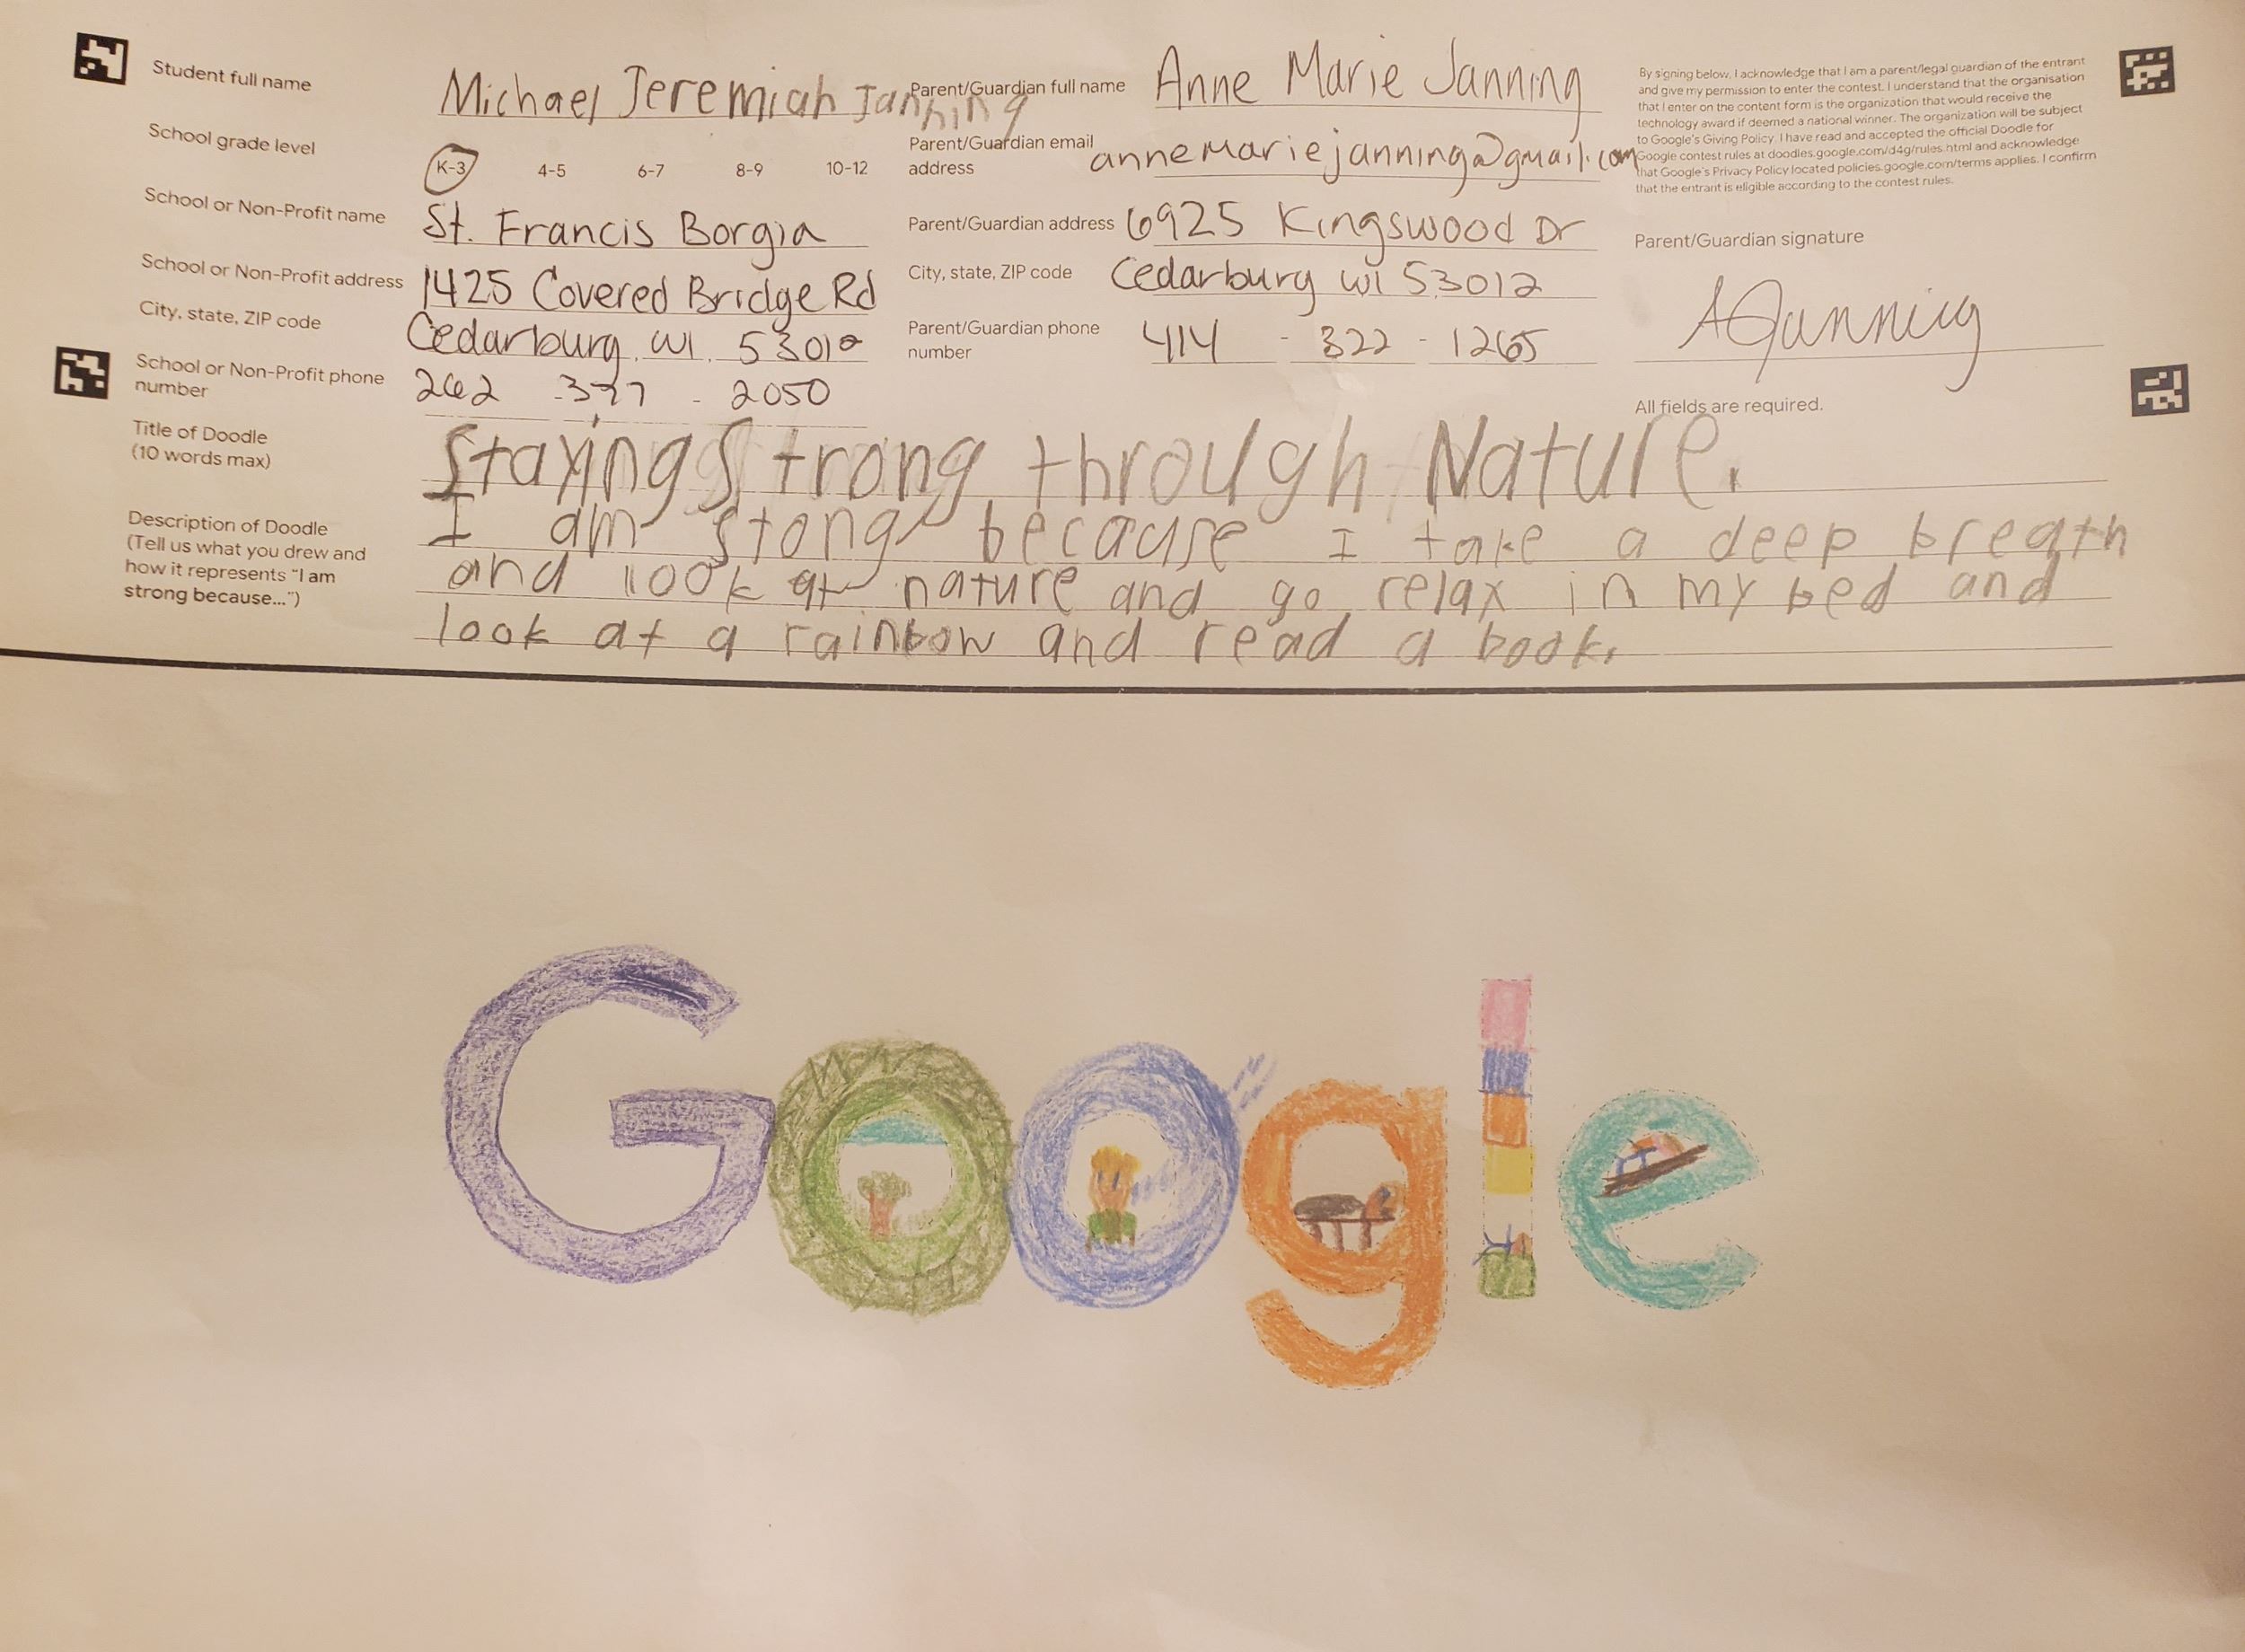 Student full name Michael Jeremiah Janning
School grade level K-3 4-5 6-7 8-9 10-12
School or Non-Profit name St. Francis Borgia
School or Non-Profit address 1425 Covered Bridge Rd
City, state, ZIP code Cedarburg WI 53012
School or Non-Profit phone number 262 - 377 - 2050
Parent/Guardian full name Anne Marie Janning
Parent/Guardian email address annemariejanning@gmail.com
Parent/Guardian address 6925 Kingswood Dr
City, state, ZIP code Cedarburg WI 53012
Parent/Guardian phone number 414 - 322 - 1265
By signing below, I acknowledge that I am a parent/legal guardian of the entrant
and give my permission to enter the contest. I understand that the organisation
that I enter on the content form is the organization that would receive the
technology award if deemed a national winner. The organization will be subject
to Google's Giving Policy. I have read and accepted the official Doodle for
Google contest rules at doodles.google.com/d4g/rules.html and acknowledge
that Google's Privacy Policy located policies.google.com/terms applies. I confirm
that the entrant is eligible according to the contest rules.
Parent/Guardian signature
AJanning
All fields are required.
Title of Doodle
(10 words max)
Staying Strong through Nature.
Description of Doodle
(Tell us what you drew and
how it represents "I am
strong because...")
I am stong because I take a deep breath
and look at nature and go relax in my bed and
look at a rainbow and read a book.
Google